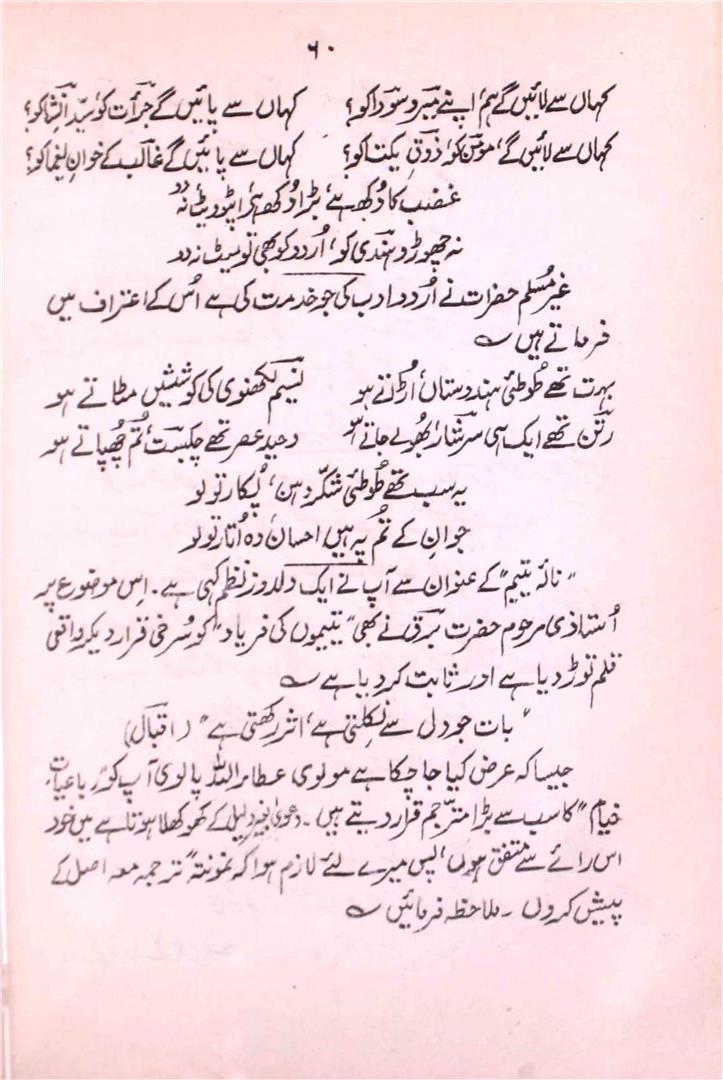 ۶۰
کہاں سے لائیں گے ہم، اپنے میر و سودا کو؟ کہاں سے پائیں گے جرأت کو سیّد انشا کو؟
کہاں سے لائیں گے، مومن کو، ذوقِ یکتا کو؟ کہاں سے پائیں گے غالب کے خوانِ یغما کو؟
غضب کا دُکھ ہے، بڑا دُکھ ہے،
نہ چھوڑو ہندی کو، اُردو کو بھی تو میٹ نہ دو
غیر مُسلم حضرات نے اُردو ادب کی جو خدمت کی ہے اُس کے اعتراف میں
فرماتے ہیں ؎
بہت تھے طُوطیٔ ہندوستاں، اُڑاتے ہو نسیم لکھنوی کی کوششیں مٹاتے ہو
رتن تھے ایک ہی سرشار، بھُولے جاتے ہو وحیدِ عصر تھے چکبست، تُم چھُپاتے ہو
یہ سب تھے طُوطیٔ شکّر دہن، پُکار تو لو
جو اِن کے تُم پہ ہیں احسان، وہ اُتار تو لو
”نالۂ یتیم“ کے عنوان سے آپ نے ایک دلدوز نظم کہی ہے۔ اِس موضوع پر
اُستاذی مرحوم حضرت برق نے بھی ”یتیموں کی فریاد“ کو سُرخی قرار دیکر واقعی
قلم توڑ دیا ہے اور ثابت کر دیا ہے ؎
”بات جو دل سے نکلتی ہے، اثر رکھتی ہے“ (اقبال)
جیسا کہ عرض کیا جا چکا ہے مولوی عطاء اللہ پالوی آپ کو ”رباعیاتِ
خیام“ کا سب سے بڑا مترجم قرار دیتے ہیں۔ دعویٰ بغیر دلیل کے کھوکھلا ہوتا ہے میں خود
اس رائے سے متفق ہوں، پس میرے لئے لازم ہوا کہ نمونتہً ترجمہ معہ اصل کے
پیش کروں۔ ملاحظہ فرمائیں ؎